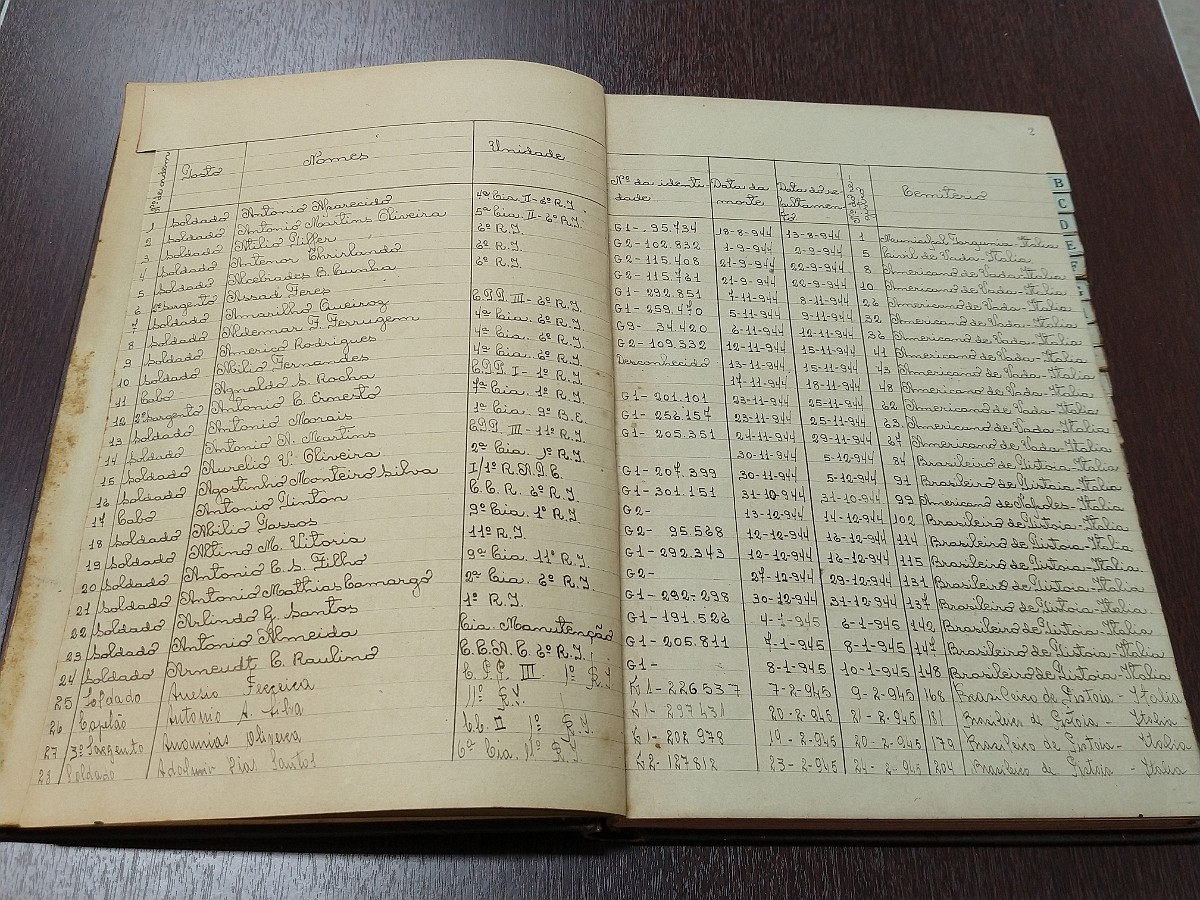 2
Nº de ordem Posto Nomes Unidade
1 Soldado Antonio Aparecido 4ª Cia. II - 6º R.I.
2 Soldado Antonio Martins Oliveira 5ª Cia. II - 6º R.I.
3 Soldado Atilio Piffer 6º R.I.
4 Soldado Antenor Chirlando
5 Soldado Alcebiades B. Cunha 6º R.I.
6 2º Sargento Assad Feres
7 Soldado Amarilho Queiroz C.P.P. III - 6º R.I.
8 Soldado Aldemar F. Ferrugem 4ª Cia. 6º R.I.
9 Soldado Americo Rodrigues 4ª Cia. 6º R.I.
10 Soldado Abilio Fernandes 4ª Cia. 6º R.I.
11 Cabo Agnaldo S. Rocha C.P.P. I - 1º R.I.
12 2º Sargento Antonio C. Ernesto 7ª Cia. 1º R.I.
13 Soldado Antonio Morais 1ª Cia. 9º B.E.
14 Soldado Antonio A. Martins C.P.P. III - 11º R.I.
15 Soldado Aurelio V. Oliveira 2ª Cia. 1º R.I.
16 Soldado Agostinho Monteiro Silva I/1º R.A.P.C.
17 Cabo Antonio Pinton C.C.R. 6º R.I.
18 Soldado Abilio Passos 9ª Cia. 1º R.I.
19 Soldado Altino M. Vitoria 11º R.I.
20 Soldado Antonio C. S. Filho 9ª Cia. 11º R.I.
21 Soldado Antonio Mathias Camargo 2ª Cia. 6º R.I.
22 Soldado Arlindo G. Santos 1º R.I.
23 Soldado Antonio Almeida Cia. Manutenção
24 Soldado Arneudt C. Raulino C.C.A.C. 6º R.I.
25 Soldado Anesio Ferreira C.P.P. III 1º R.I.
26 Capelão Antonio A. Silva 11º R.I.
27 3º Sargento Ananias Oliveira CC. II 1º R.I.
28 Soldado Adolino Dias Santos 6ª Cia. 11º R.I.
Nº da identidade Data da morte Data do sepultamento Cemitério
G1-. 95.734 18-8-944 13-8-944 1 Municipal Tarquinia - Italia
G2-102.832 1-9-944 2-9-944 5 Civil de Vada - Italia
G2-115.408 21-9-944 22-9-944 8 Americano de Vada - Italia
G2-115.761 21-9-944 22-9-944 10 Americano de Vada - Italia
G1-292.851 7-11-944 8-11-944 26 Americano de Vada - Italia
G1-259.470 5-11-944 9-11-944 32 Americano de Vada - Italia
G3- 34.420 6-11-944 12-11-944 36 Americano de Vada - Italia
G2-109.332 12-11-944 15-11-944 41 Americano de Vada - Italia
Desconhecido 13-11-944 15-11-944 43 Americano de Vada - Italia
17-11-944 18-11-944 48 Americano de Vada - Italia
G1-201.101 23-11-944 25-11-944 62 Americano de Vada - Italia
G1-256.157 23-11-944 25-11-944 63 Americano de Vada - Italia
G1-205.351 24-11-944 29-11-944 67 Americano de Vada - Italia
30-11-944 5-12-944 84 Brasileiro de Pistoia - Italia
G1-207.399 30-11-944 5-12-944 91 Brasileiro de Pistoia - Italia
G1-301.151 31-10-944 31-10-944 99 Americano de Napoles - Italia
G2- 13-12-944 14-12-944 102 Brasileiro de Pistoia - Italia
G2- 95.568 12-12-944 16-12-944 114 Brasileiro de Pistoia - Italia
G1-292.343 12-12-944 16-12-944 115 Brasileiro de Pistoia - Italia
G2- 27-12-944 29-12-944 131 Brasileiro de Pistoia - Italia
G1-292-298 30-12-944 31-12-944 137 Brasileiro de Pistoia - Italia.
G1-191.526 4-1-945 6-1-945 142 Brasileiro de Pistoia - Italia
G1-205.811 7-1-945 8-1-945 147 Brasileiro de Pistoia - Italia
G1- 8-1-945 10-1-945 148 Brasileiro de Pistoia - Italia
G1-226537 7-2-945 9-2-945 168 Brasileiro de Pistoia - Italia
G1-297431 20-2-945 21-2-945 181 Brasileiro de Pistoia - Italia
G1-202978 19-2-945 20-2-945 179 Brasileiro de Pistoia - Italia
G2-127812 23-2-945 24-2-945 204 Brasileiro de Pistoia - Italia
B
C
D
E
F